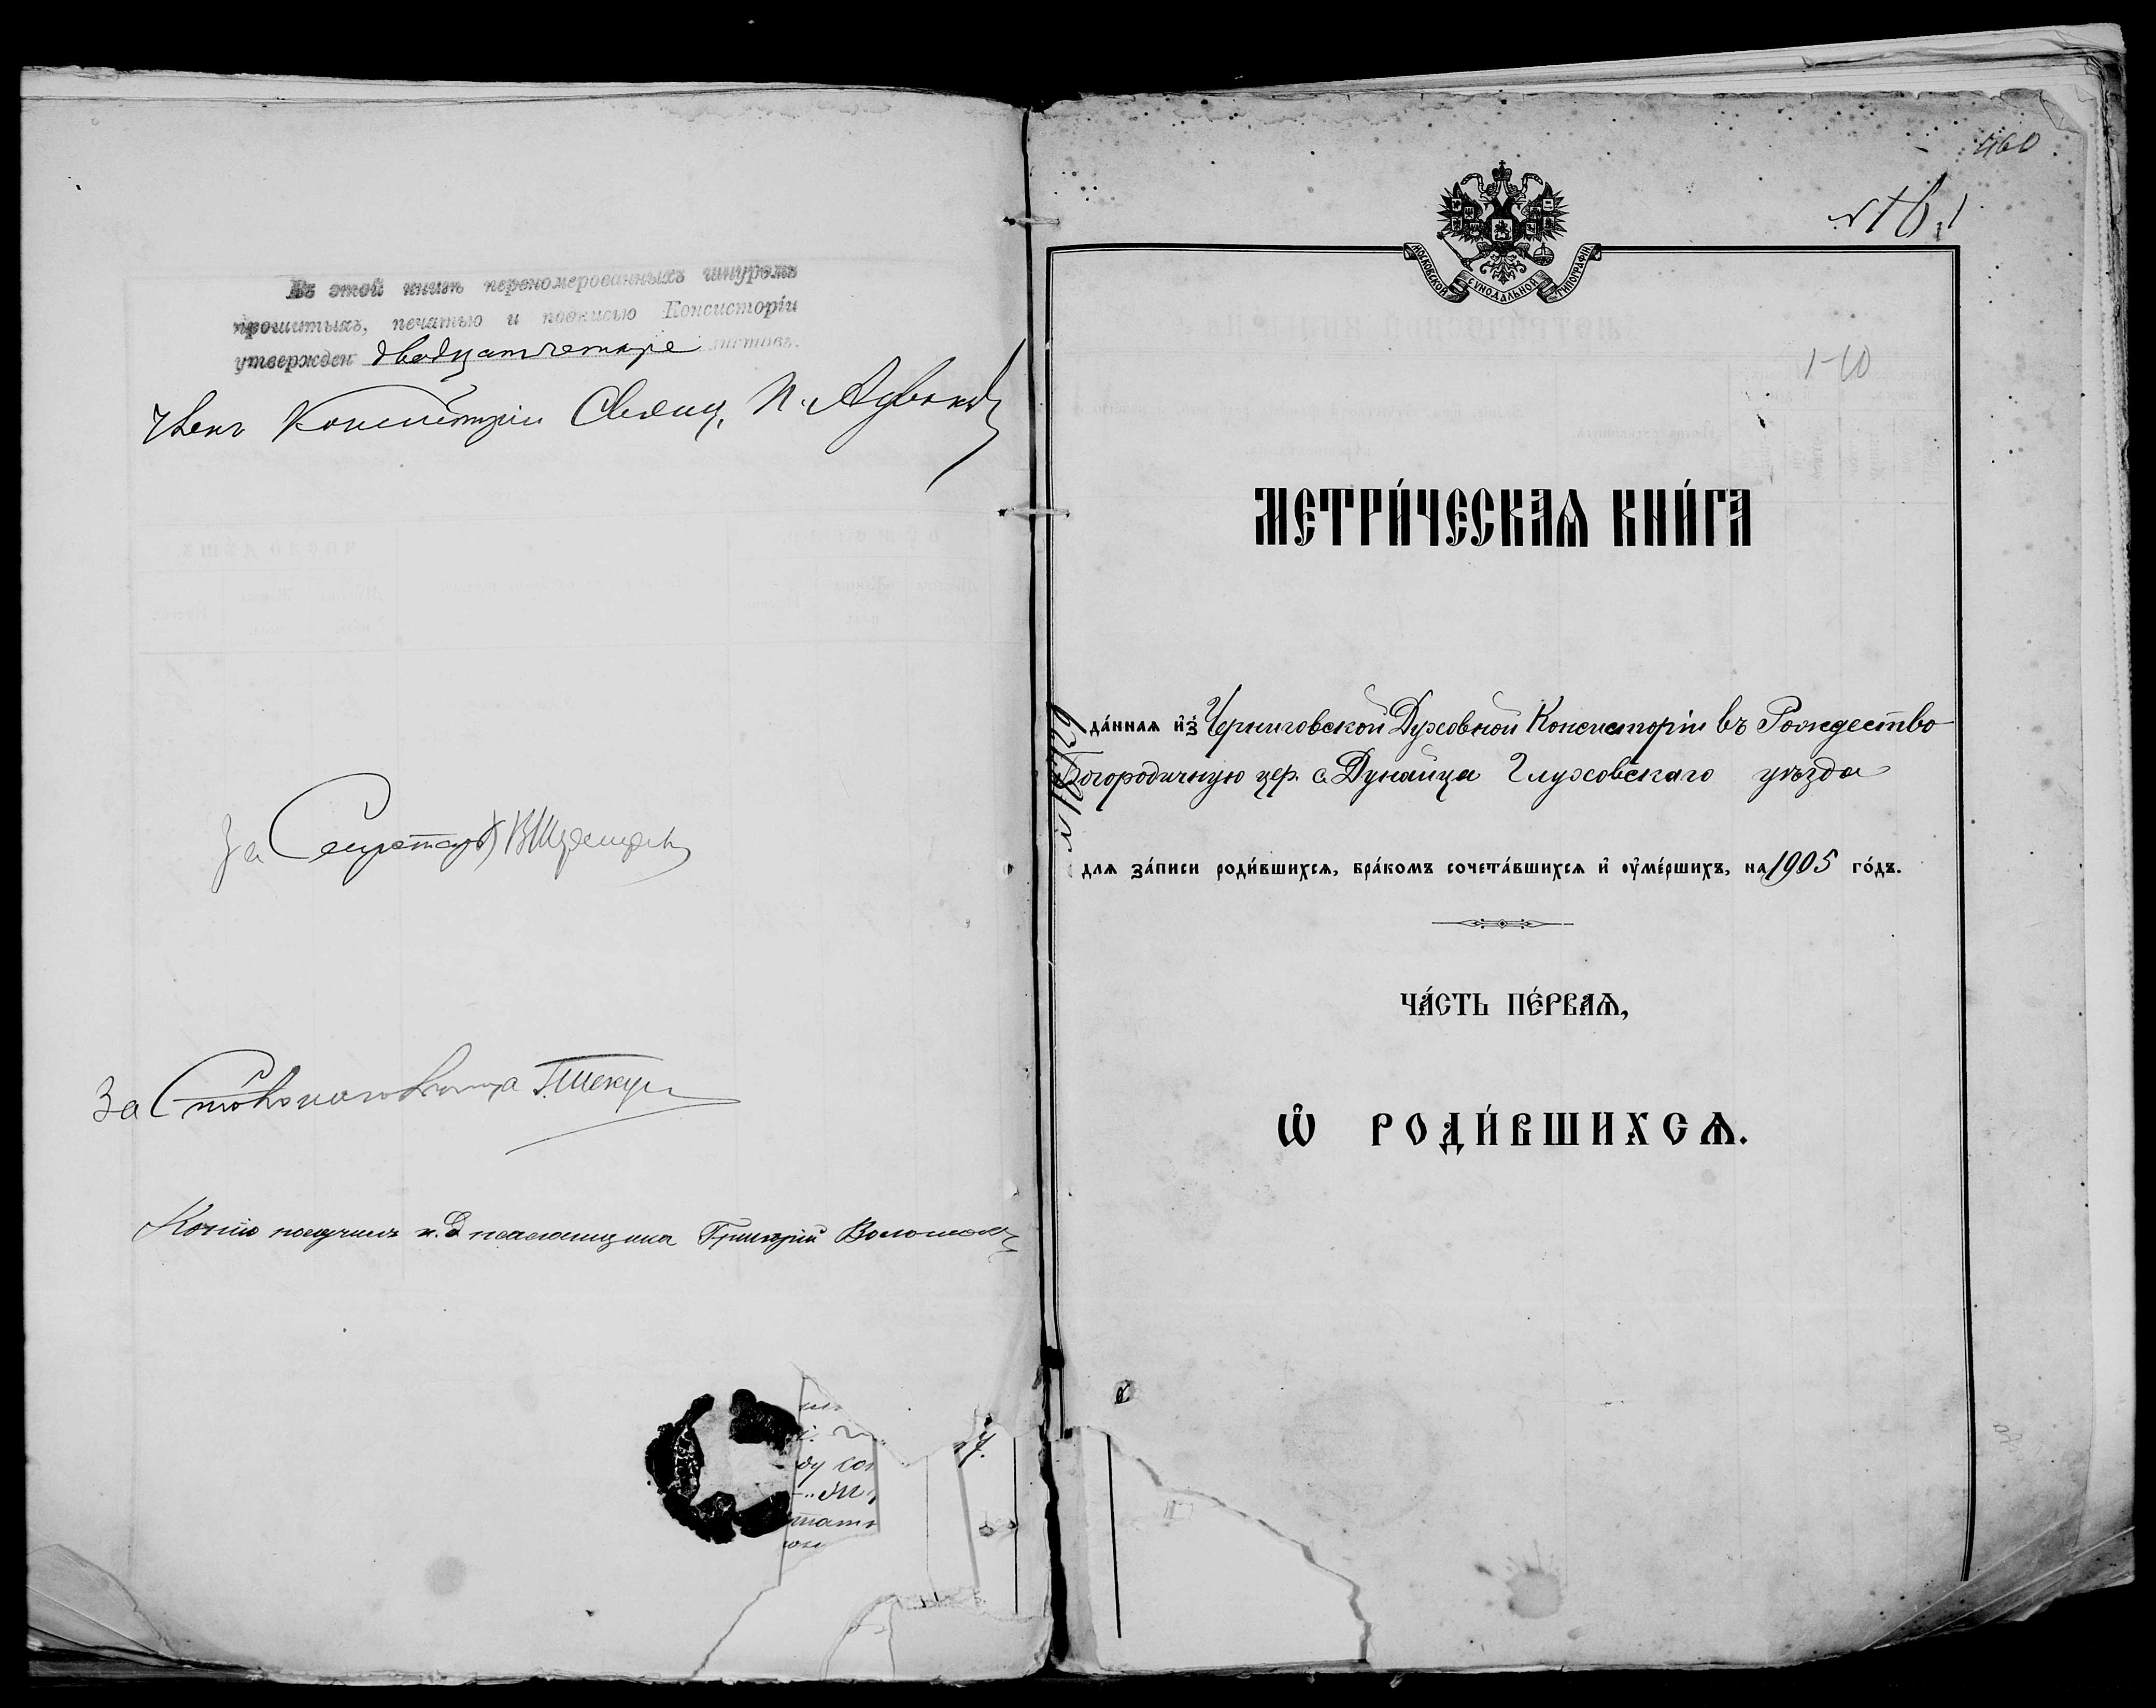 Въ этой книгѣ перенумерованныхъ шнуромъ
прошитыхъ, печатью и подписью Консисторіи
утвержден двадцать четыре листовъ.
Членъ Консисторіи Священ. П.
За Секретаря
За Столоначальника
Копію получилъ и. д. псаломщика Григорій
460
№ 16.
1-10
МОСКОВСКОЙ СѴНОДАЛЬНОЙ ТИПОГРАФІИ
МЕТРИ́ЧЕСКАѦ КНИ́ГА
да́ннаѧ и҆з̾ Черниговской Духовной Консисторіи въ Рождество
Богородичную цер. с. Дунайца Глуховскаго уѣзда
длѧ за́писи роди́вшихсѧ, бра́комъ сочета́вшихсѧ и҆ оу҆ме́ршихъ, на 1905 го́дъ.
ЧА́СТЬ ПЕ́РВАѦ,
Ѽ РОДИ́ВШИХСѦ.